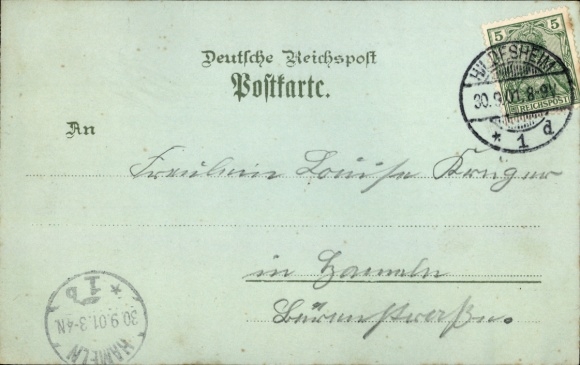 5
REICHSPOST
HILDESHEIM
30.9.01.8-9V.
* 1 d
Deutsche Reichspost
Postkarte.
An
Fräulein Louise Krüger
in Hameln
Bürenstraße.
HAMELN
30.9.01.3-4N.
* 1b